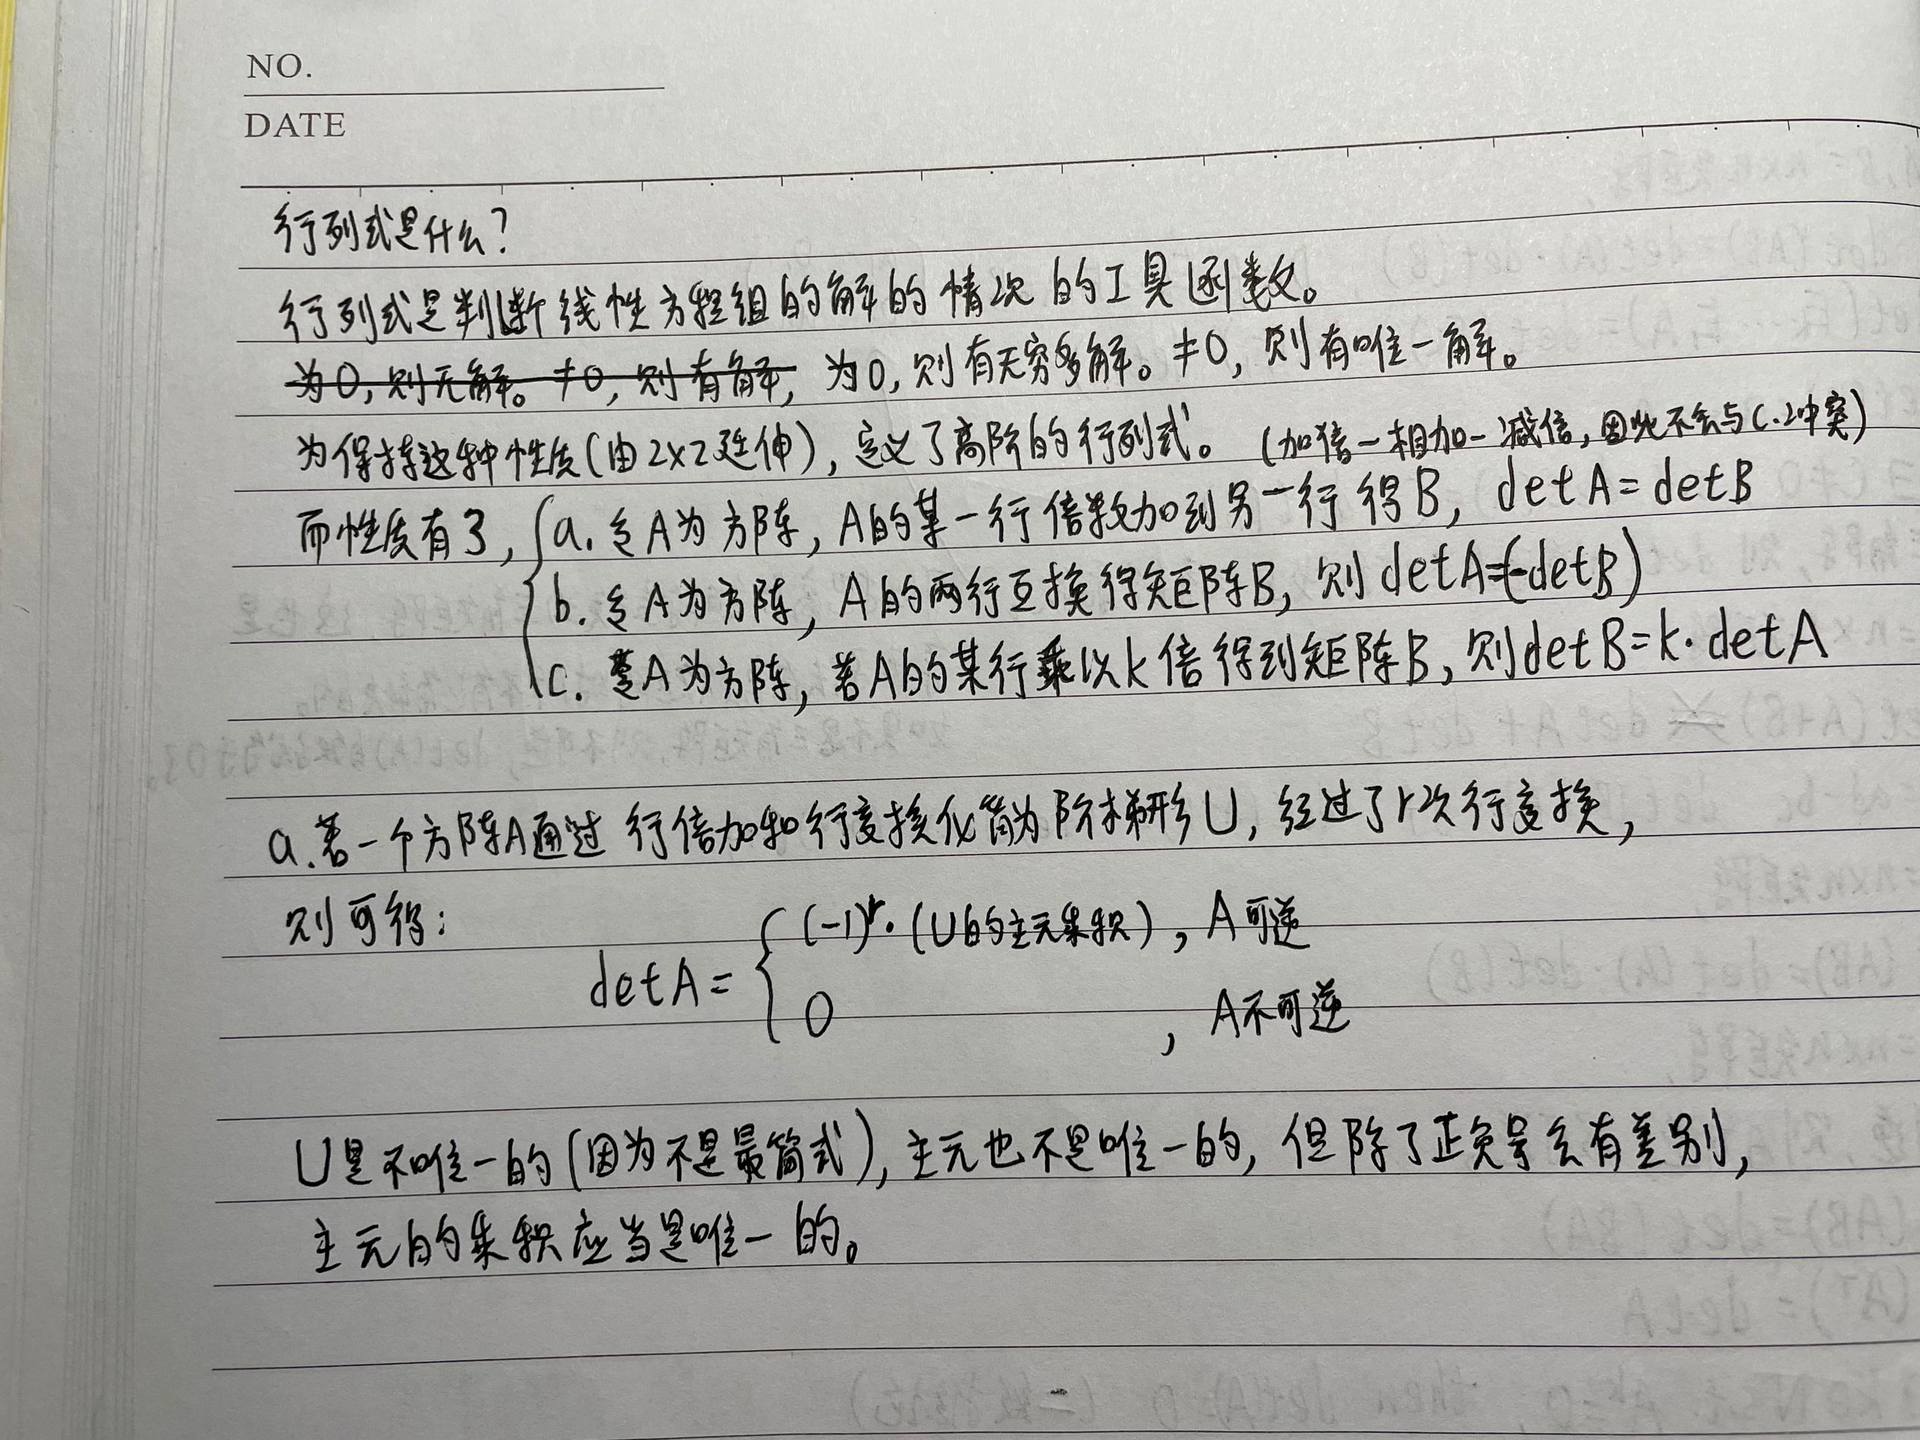 NO.
DATE
行列式是什么?
行列式是判断线性方程组的解的情况的工具函数。
为0,则无解。≠0,则有解,为0,则有无穷多解。≠0,则有唯一解。
为保持这种性质(由2x2延伸),定义了高阶的行列式。(加倍-相加-减倍,因此不会与c.冲突)
而性质有3,{a.令A为方阵,A的某一行倍数加到另一行得B,detA=detB
b.令A为方阵,A的两行互换得矩阵B,则detA=(-detB)
c.令A为方阵,若A的某行乘以k倍得到矩阵B,则detB=k·detA
a.若一个方阵A通过行倍加和行变换化简为阶梯形U,经过了r次行变换,
则可得:
detA={(-1)^r·(U的主元乘积),A可逆
0,A不可逆
U是不唯一的(因为不是最简式),主元也不是唯一的,但除了正负号会有差别,
主元的乘积应当是唯一的。